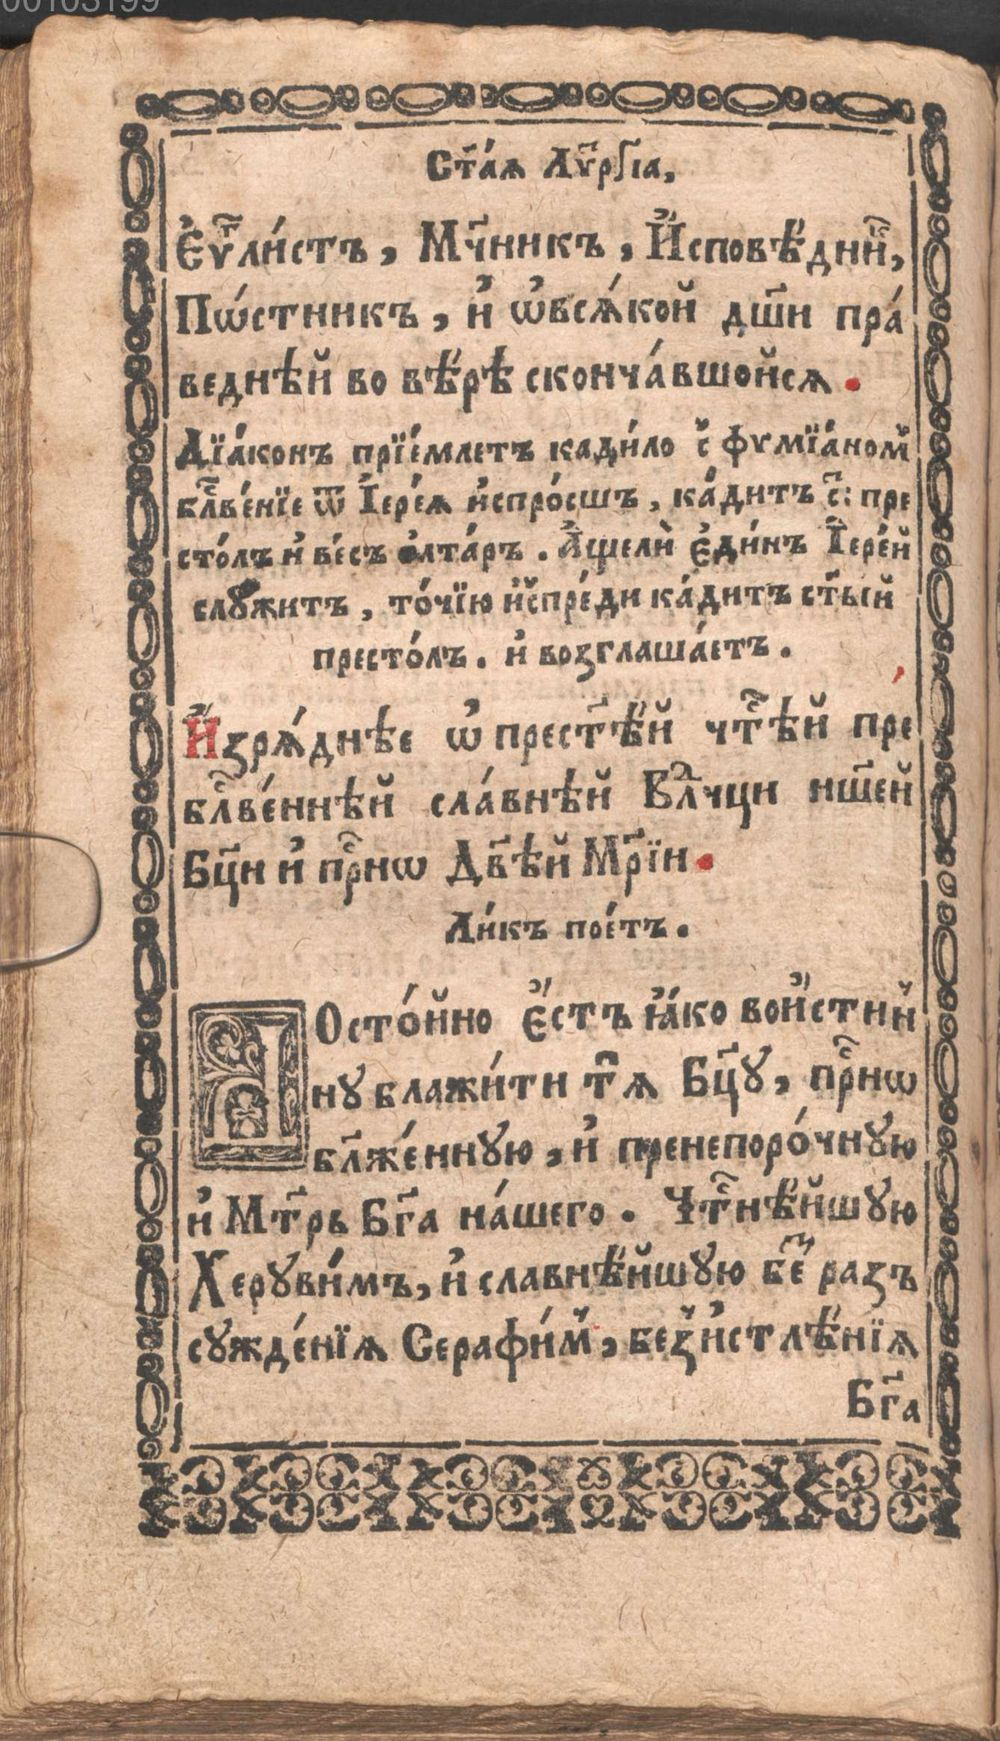 00103199
Ст҃аѧ Лѵⷬ҇гїа,
Є҆ѵⷢ҇ли́стъ, Мч҃никъ, И҆сповѣ́дниⷦ҇,
Пѡ́стникъ, и҆ ѡ҆всѧ́кой дш҃и пра́
веднѣй во вѣ́рѣ сконча́вшойсѧ.
Дїа́конъ прїе́млетъ кади́ло с̾ фѵмїа́номⷨ
бл҃ве́нїе ѿ І҆ере́ѧ и҆спро́сшъ, ка́дитъ с҃: пре
сто́лъ и҆ ве́съ ѻлта́ръ. А҆щели̇̀ є҆ди́нъ І҆ере́й
слꙋ́житъ, то́чїю и҆спре́ди ка́дитъ ст҃ы́й
престо́лъ. и҆ возглаша́етъ.
И҆зрѧ́днѣе ѡ҆ прест҃ѣ́й чтⷭ҇ѣй пре
бл҃ве́ннѣй сла́внѣй Влⷣчци нш҃ей
Бц҃и и҆ прⷭ҇нѡ Дв҃ѣй Мр҃їи.
Ли́къ пое́тъ.
Досто́йно є҆́стъ ꙗ҆́ко вои́стин
нꙋ блажи́ти тѧ Бц҃ꙋ, прⷭ҇нѡ
бл҃же́ннꙋю, и҆ пренепоро́чнꙋю
и҆ Мт҃рь Бг҃а на́шего. Чтⷭ҇нѣ́йшꙋю
Херꙋви́мъ, и҆ славнѣ́йшꙋю беⷥ҇ разъ
сꙋжде́нїѧ Серафи́мⷨ, без̾и҆стлѣ́нїѧ
Бг҃а